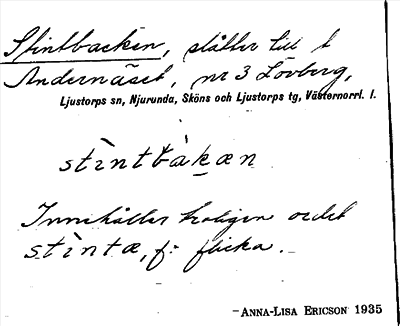 Stintbacken, slåtter till t
Andernäset, nr 3 Lövberg,
Ljustorps sn, Njurunda, Sköns och Ljustorps tg, Västernorrl. l.
stìntbàkæn
Innehåller troligen ordet
stìntæ, f: flicka.
-ANNA-LISA ERICSON 1935